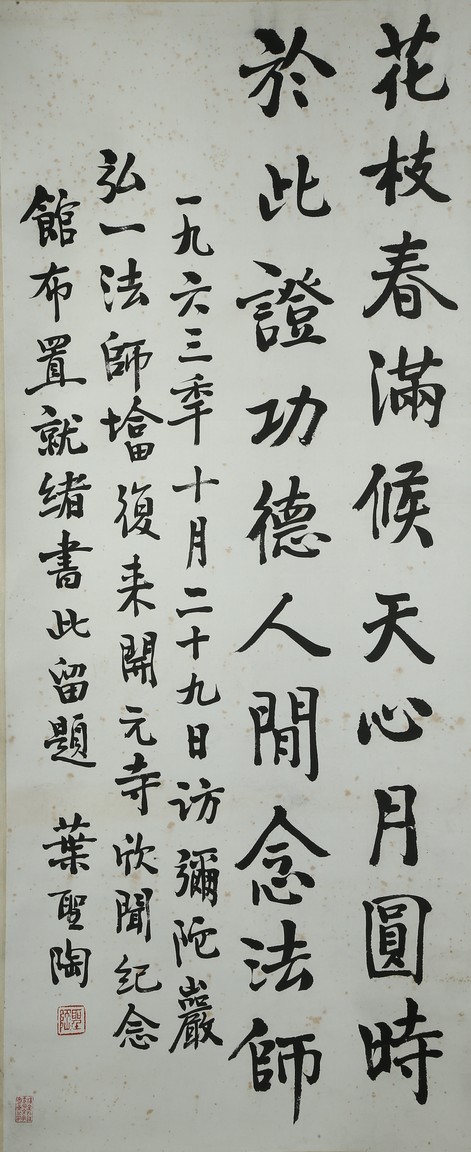 花枝春滿候天心月圓時
於此證功德人間念法師
一九六三季十月二十九日访彌陀巖
弘一法師墖復来開元寺欣聞纪念
館布置就緒書此留題 葉聖陶